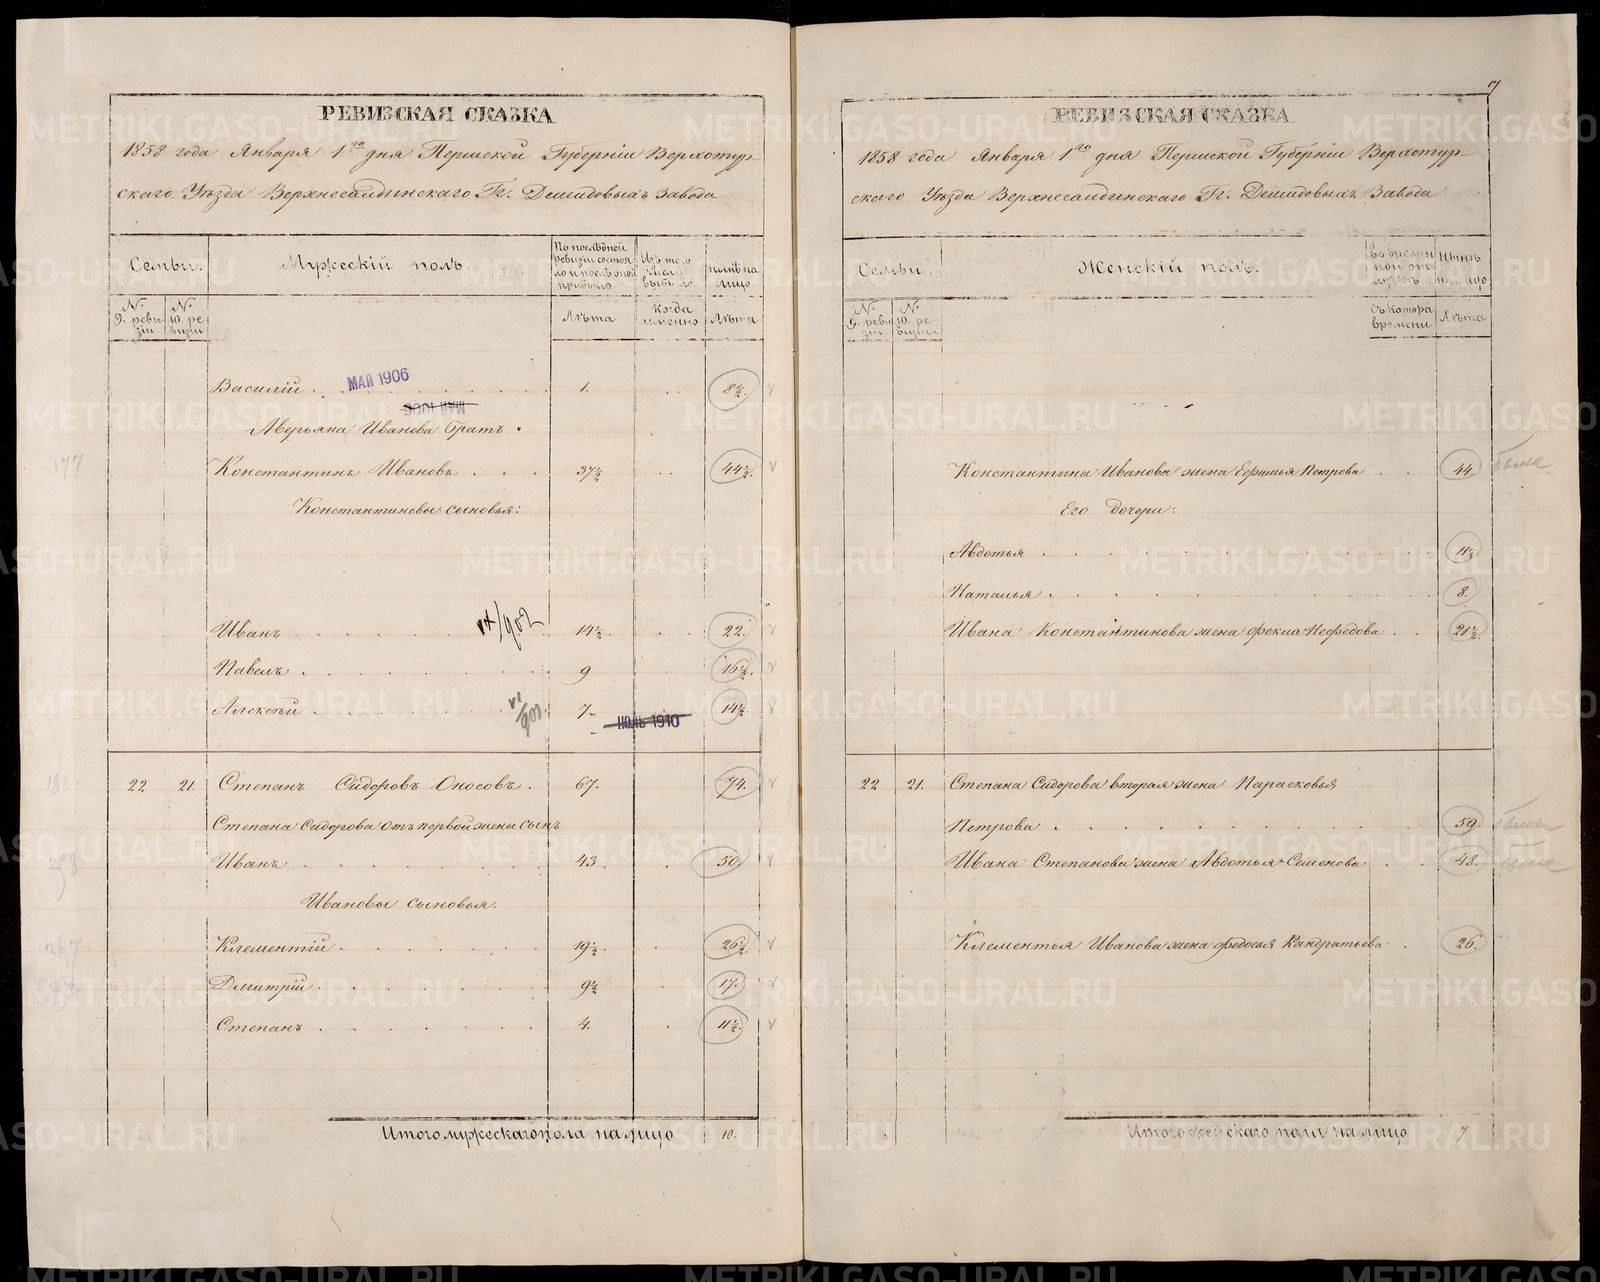 РЕВИЗСКАЯ СКАЗКА
1858 года Января 1го дня Пермской Губерніи Верхотур-
скаго Уѣзда Верхнесалдинскаго Гг. Демидовыхъ Завода
Семьи.
Мужескій полъ.
По послѣдней ревизіи состояло и послѣ оной прибыло
Изъ того числа выбыло
Нынѣ на лицо
№ 9. ревизіи
№ 10. ревизіи
Лѣта
Когда именно
Лѣта
Василій 1. 8½.
МАЙ 1906
МАЙ 1906
Аверьяна Иванова братъ.
177
Константинъ Ивановъ 37½ 44½.
Константиновы сыновья:
Иванъ 14½. 22.
Павелъ 9 16½.
Алексѣй 7 14½
ІЮЛЬ 1910
180.
22 21. Степанъ Сидоровъ Оносовъ. 67. 74.
Степана Сидорова отъ первой жены сынъ
Иванъ 43. 50.
Ивановы сыновья.
267
Клементій 19½ 26½
Дмитрій 9½ 17.
Степанъ 4. 11½
Итого мужескаго пола на лицо 10.
7
РЕВИЗСКАЯ СКАЗКА
1858 года Января 1го дня Пермской Губерніи Верхотур-
скаго Уѣзда Верхнесалдинскаго Гг. Демидовыхъ Завода
Семьи.
Женскій полъ.
Во временной отлучкѣ
Нынѣ на лицо
№ 9. ревизіи
№ 10. ревизіи
Съ котора времени
Лѣта
Константина Иванова жена Ефимья Петрова 44.
Его дочери:
Авдотья 11½
Наталья 8.
Ивана Константинова жена Фекла Нефедова 21½.
22 21. Степана Сидорова вторая жена Парасковья
Петрова 59
Ивана Степанова жена Авдотья Семенова 48.
Клементья Иванова жена Федосья Кандратьева 26.
Итого женскаго пола на лицо 7
METRIKI.GASO-URAL.RU